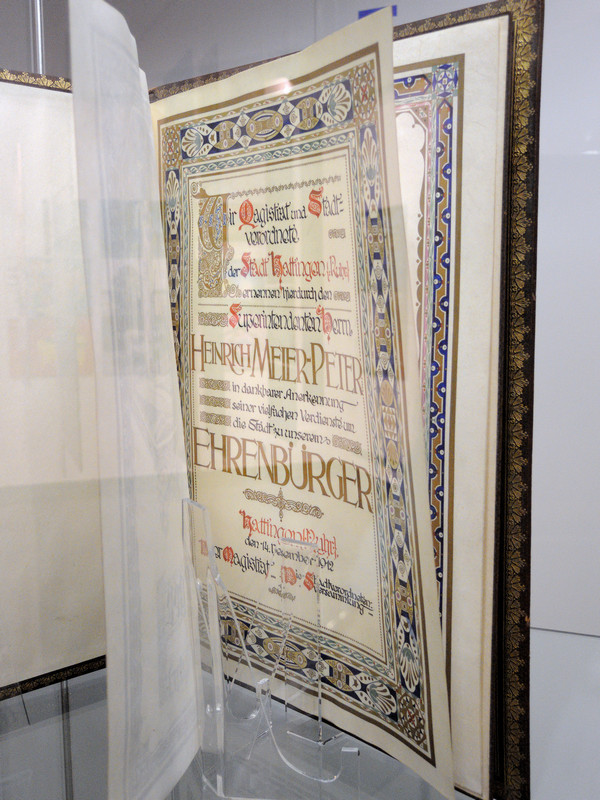 Wir Magistrat und Stadt-
verordnete
der Stadt Hattingen (Ruhr)
ernennen hierdurch den
Superintendenten Herrn
HEINRICH MEIER-PETER
in dankbarer Anerkennung
seiner vielfachen Verdienste um
die Stadt zu unserem
EHRENBÜRGER
Hattingen (Ruhr),
den 14. Dezember 1912
Der Magistrat - Die Stadtverordneten-
versammlung